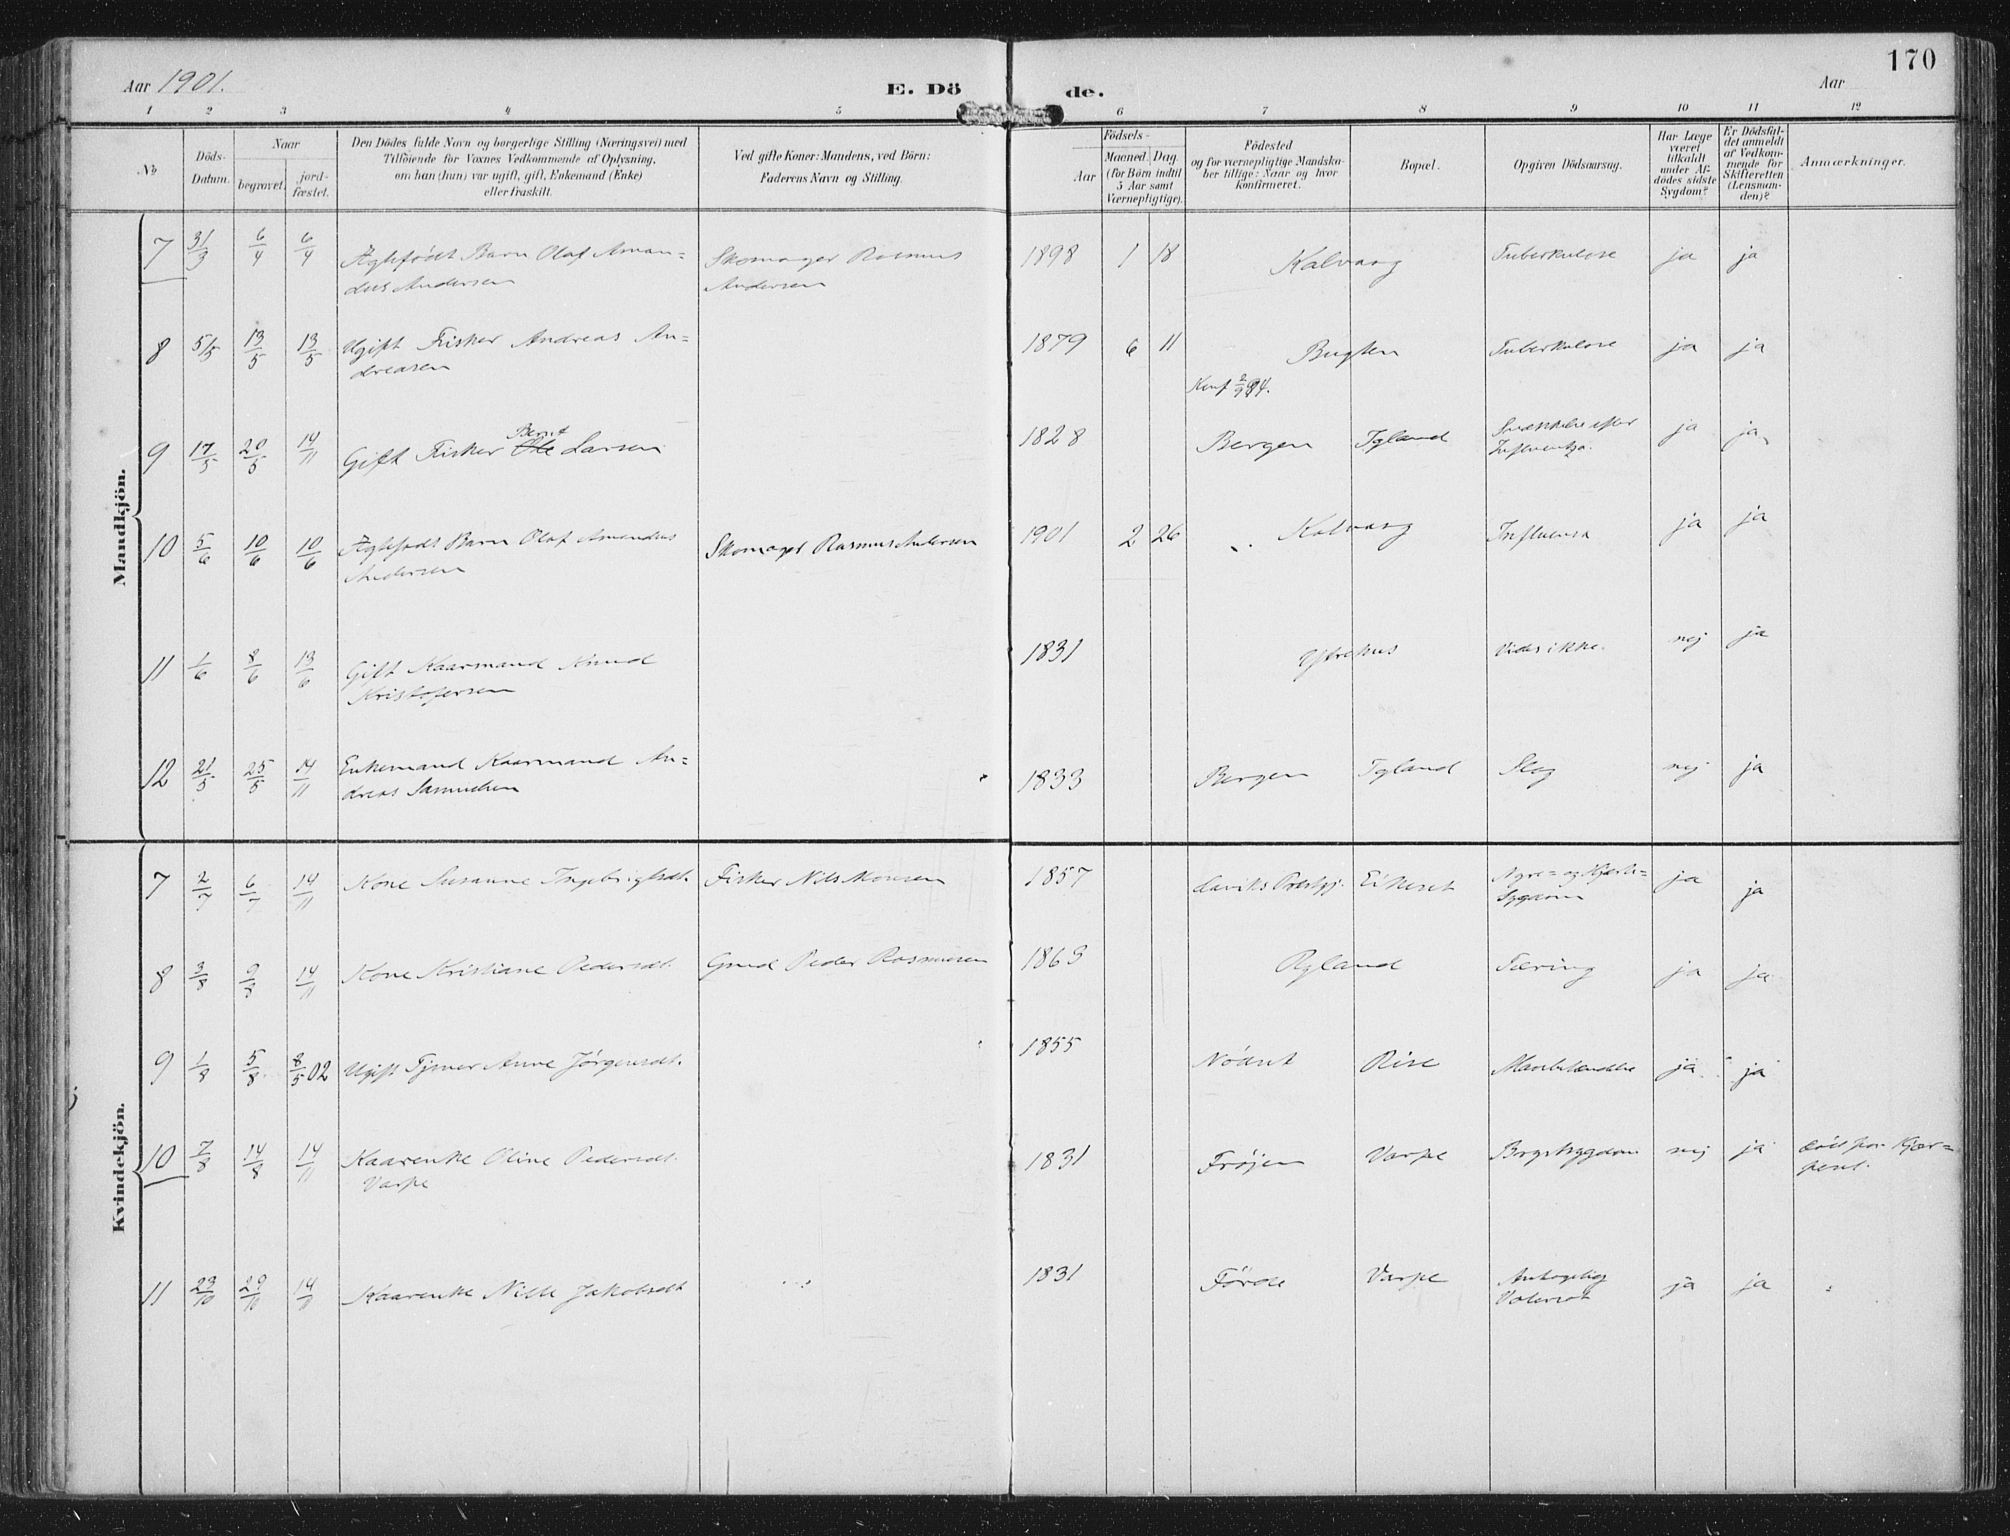 170
Aar 1901.
E. Dö
de.
Aar
1 2 3 4 5 6 7 8 9 10 11 12
No
Döds-
Datum.
Naar
begravet.
jord-
fæstet.
Den Dödes fulde Navn og borgerlige Stilling (Næringsvei) med
Tilföiende for Voxnes Vedkommende af Oplysning,
om han (hun) var ugift, gift, Enkemand (Enke)
eller fraskilt.
Ved gifte Koner: Mandens, ved Börn:
Faderens Navn og Stilling.
Födsels-
Aar
Maaned. Dag.
(for Börn indtil
5 Aar samt
Værnepligtige).
Födested
og for værnepligtige Mandska-
ber tillige: Naar og hvor
konfirmeret.
Bopæl.
Opgiven Dödsaarsag.
Har Læge
været
tilkaldt
under Af-
dödes sidste
Sygdom?
Er Dödsfal-
det anmeldt
af Vedkom-
mende for
Skifteretten
(Lensman-
den)?
Anmærkninger.
Mandkjön.
7 31/3 6/4 6/4 Ægtefødt Barn Olaf Aman= Skomager Rasmus 1898 1 18 Kalvaag Tuberkulose ja ja
dus Andersen Andersen
8 5/5 13/5 13/5 Ugift Fisker Andreas An= 1879 6 11 Bugten Tuberkulose ja ja
dreasen
Konf
9 17/5 20/5 14/11 Gift Fisker Ole Larsen 1828 Bergen Igland Svækkelse efter ja ja
Bernt
Influentza.
10 5/6 10/6 10/6 Ægtefødt Barn Olaf Amandus Skomager Rasmus Andersen 1901 2 26 Kalvaag Influensa ja ja
Andersen
11 1/6 8/6 13/6 Gift Kaarmand Knud 1831 Ytrehus Vides ikke. nej ja
Kristofersen
12 21/5 25/5 14/11 Enkemand Kaarmand An= 1833 Bergen Igland Slag nej ja
dreas Samuelsen
Kvindekjön.
7 2/7 6/7 14/11 Kone Susanne Ingebrigtsdt. Fisker Nils Monsen 1857 Laviks Prestgj. Eikeset Nyre= og Hjerte= ja ja
Sygdom
8 3/8 9/8 14/11 Kone Kristiane Pedersdt. Gmd Peder Rasmusen 1863 Ryland Tæring ja ja
9 1/8 5/8 8/5 02 Ugift Tjener Anne Jørgensdt. 1855 Nødset Rise ja ja
10 7/8 14/8 14/11 Kaarenke Oline Pedersdt. 1831 Frøjen Varpe Brystsygdom nej ja
Varpe
11 23/10 29/10 14/11 Kaarenke Nille Jakobsdt 1831 Førde Varpe ja ja